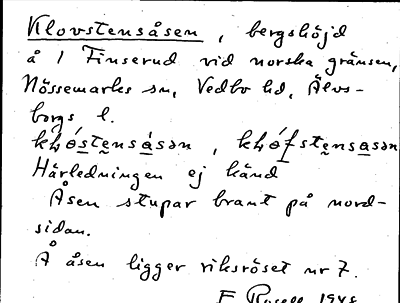 Klovstensåsen, bergshöjd
å 1 Finserud vid norska gränsen,
Nössemarks sn, Vedbo hd, Älvs-
borgs l.
Härledningen ej känd
Åsen stupar brant på nord-
sidan.
Å åsen ligger riksröset nr 7.
F 1948